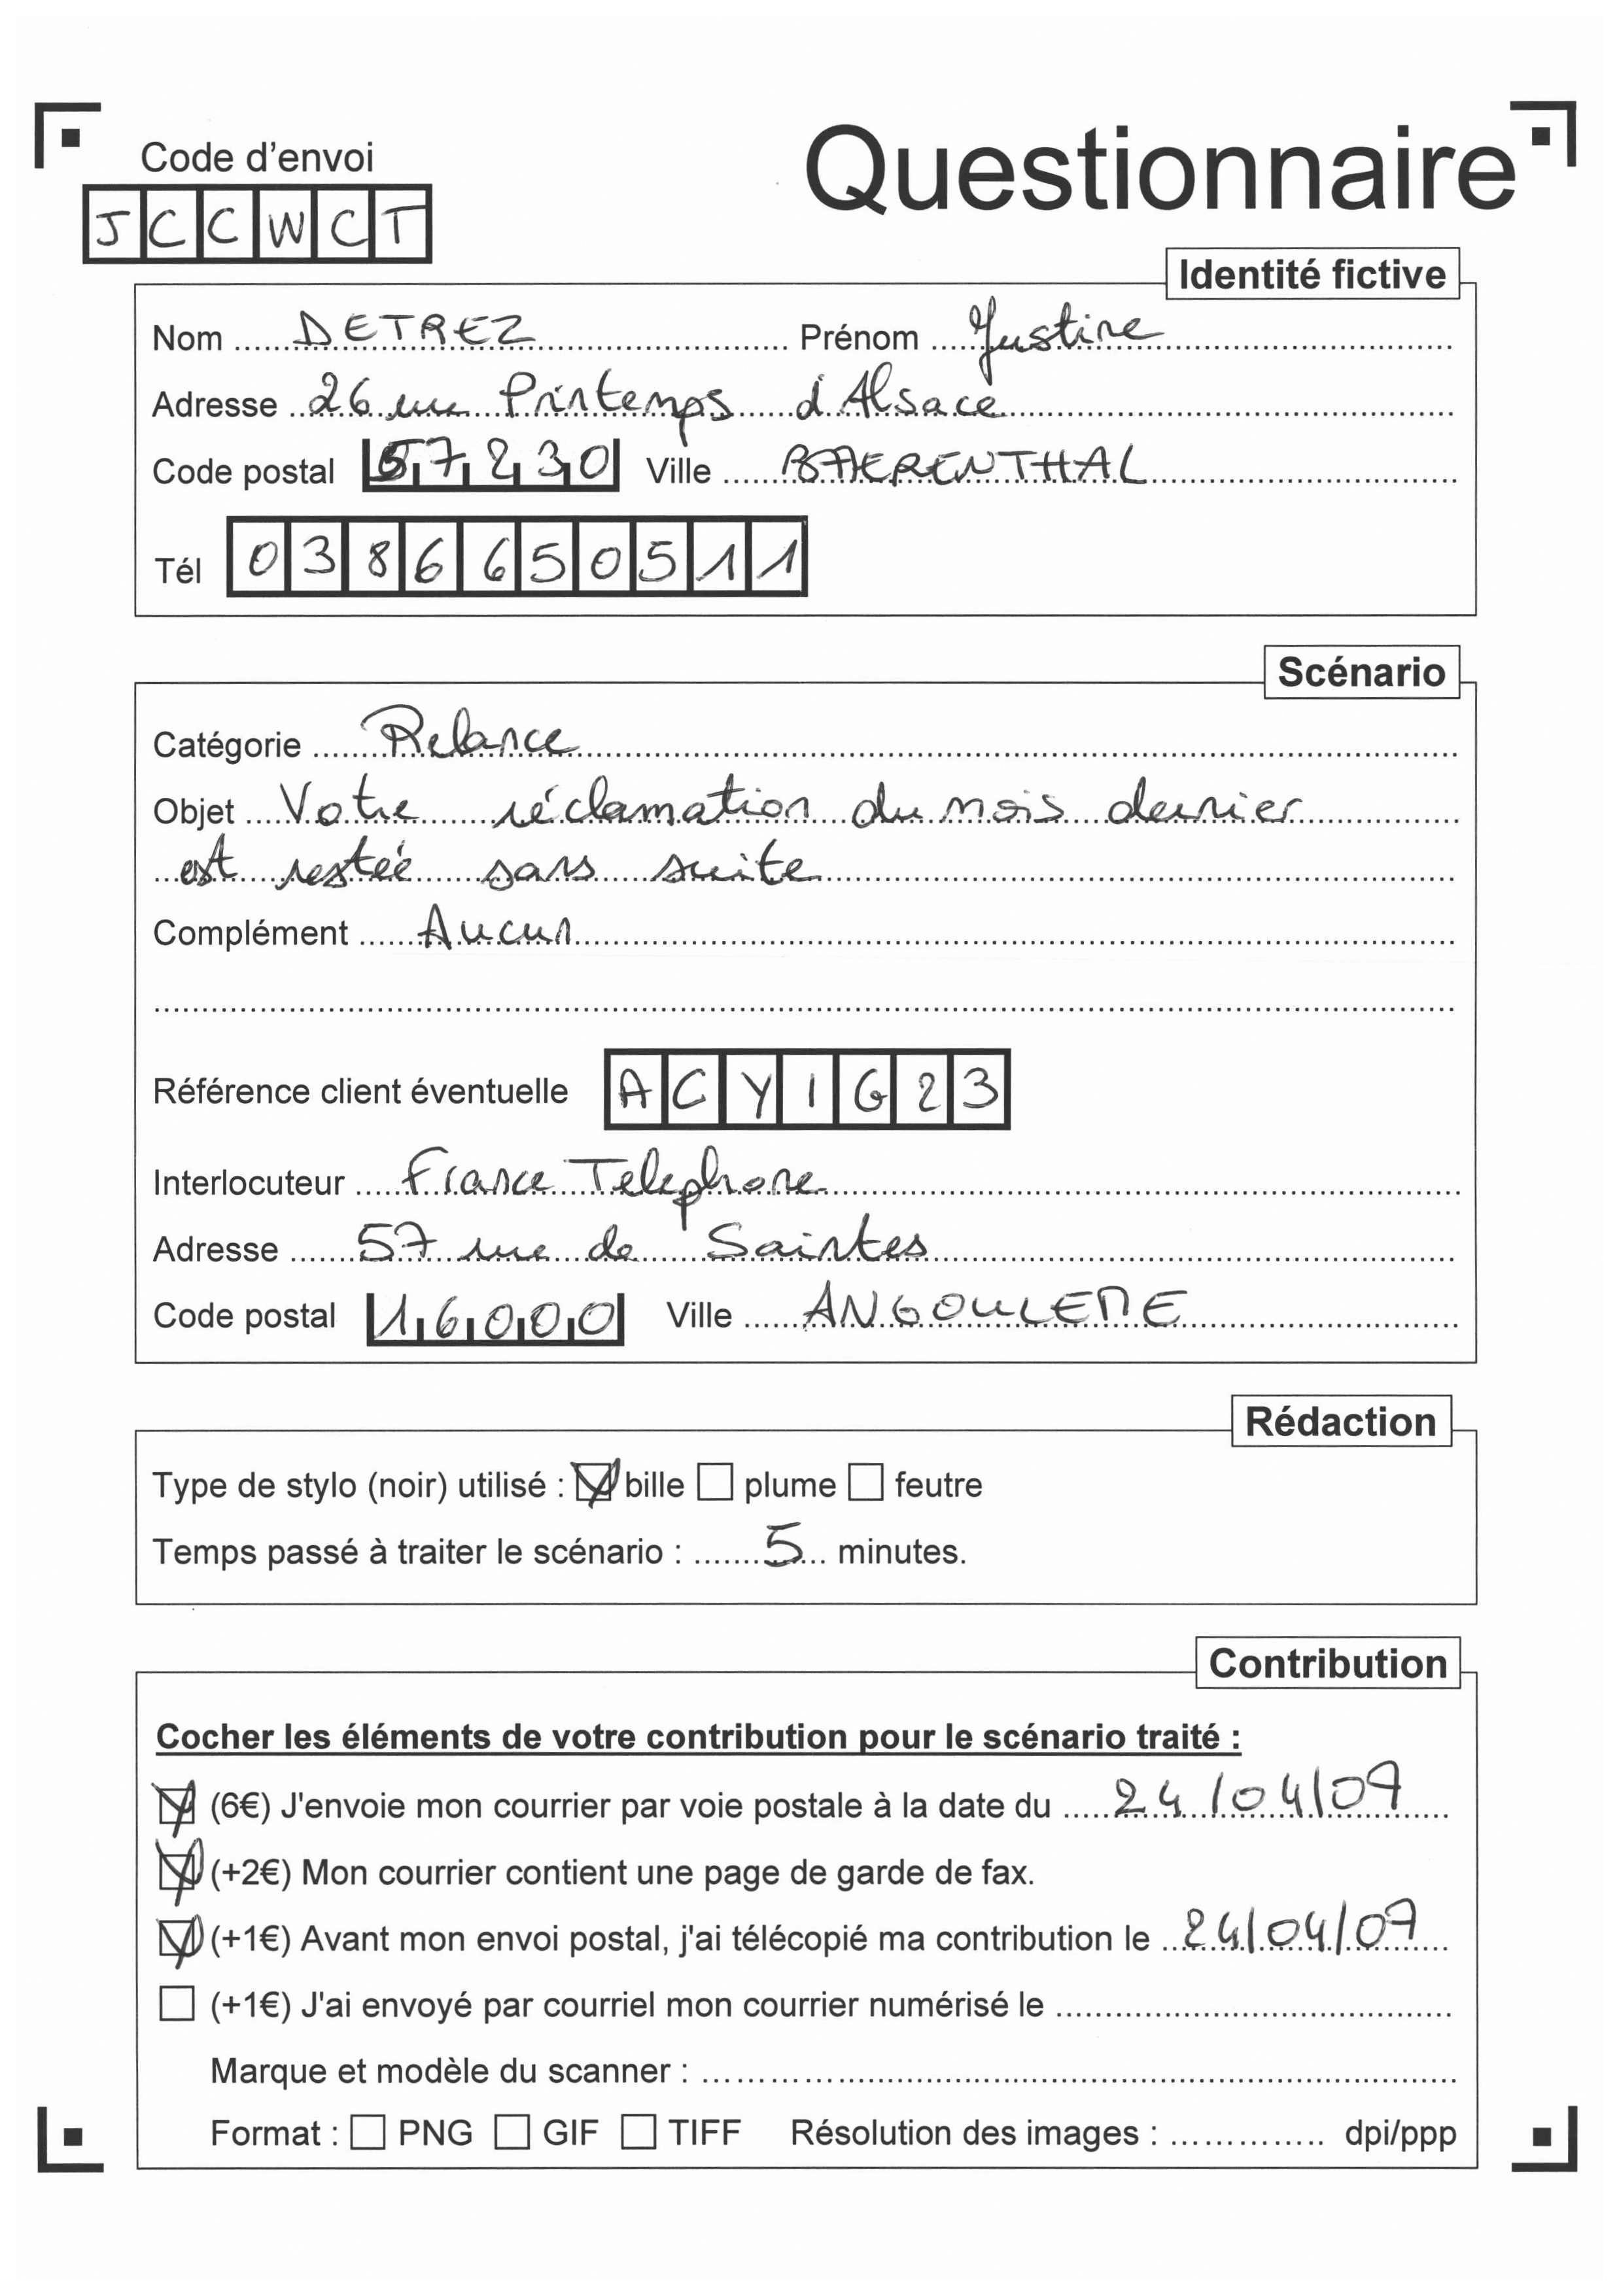 Code d'envoi
Questionnaire
JCCWCT
Identité fictive
Nom DETREZ Prénom Justine
Adresse 26 rue Printemps d'Alsace
Code postal 57230 Ville BAERENTHAL
Tél 0386650511
Scénario
Catégorie Relance
Objet Votre réclamation du mois dernier
est restée sans suite
Complément Aucun
Référence client éventuelle ACYIG23
Interlocuteur France Telephone
Adresse 57 rue de Saintes
Code postal 16000 Ville ANGOULEME
Rédaction
Type de stylo (noir) utilisé : bille plume feutre
Temps passé à traiter le scénario : 5 minutes.
Contribution
Cocher les éléments de votre contribution pour le scénario traité :
(6€) J'envoie mon courrier par voie postale à la date du 24/04/07
(+2€) Mon courrier contient une page de garde de fax.
(+1€) Avant mon envoi postal, j'ai télécopié ma contribution le 24/04/07
(+1€) J'ai envoyé par courriel mon courrier numérisé le
Marque et modèle du scanner :
Format : PNG GIF TIFF Résolution des images : dpi/ppp